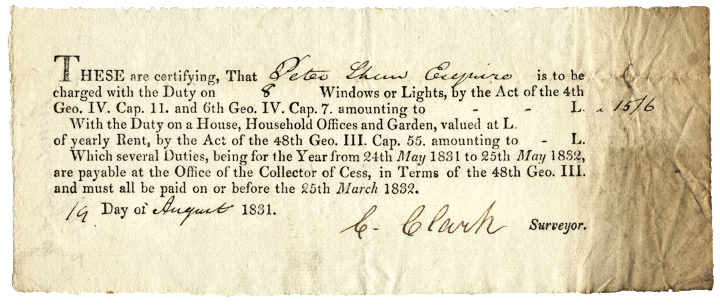 THESE are certifying, That Peter Esquire is to be
charged with the Duty on 8 Windows or Lights, by the Act of the 4th
Geo. IV. Cap. 11. and 6th Geo. IV. Cap. 7. amounting to - - L. " 15/6
With the Duty on a House, Household Offices and Garden, valued at L.
of yearly Rent, by the Act of the 48th Geo. III. Cap. 55. amounting to - L.
Which several Duties, being for the Year from 24th May 1831 to 25th May 1832,
are payable at the Office of the Collector of Cess, in Terms of the 48th Geo. III.
and must all be paid on or before the 25th March 1832.
19 Day of August 1831.
C. Clark Surveyor.